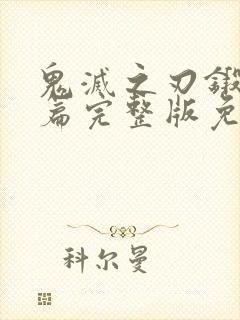 鬼滅之刃鍛
篇完整版免
科尔曼